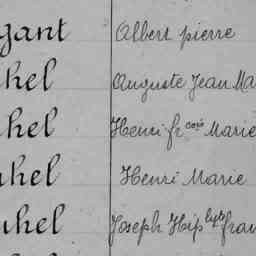 gant Albert pierre
hel Auguste Jean Ma
hel Henri frcois Marie
uhel Henri Marie
uhel Joseph Hiplyte fran